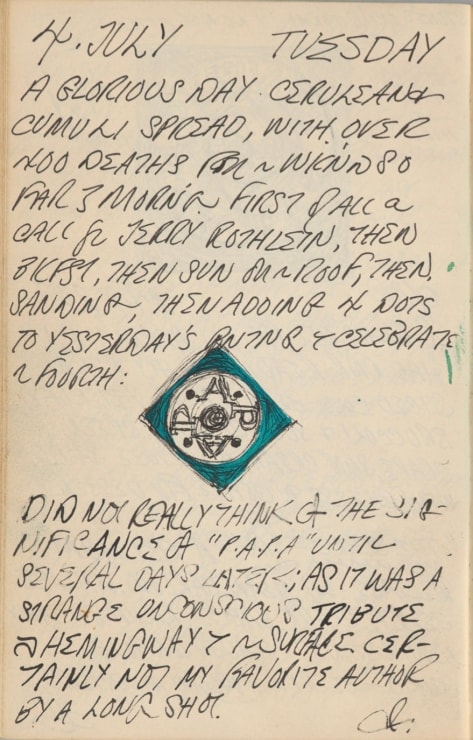 4. JULY TUESDAY
A GLORIOUS DAY. CERULEAN &
CUMULI SPREAD, WITH OVER
400 DEATHS FOR ~ WKND SO
FAR 3 MORN'G. FIRST OF ALL a
CALL fr JERRY ROTHLEIN, THEN
BKFST, THEN SUN ON ~ ROOF, THEN
SANDING, THEN ADDING 4 DOTS
TO YESTERDAY'S PNTNG to CELEBRATE
~ FOURTH:
PAPA
DID NOT REALLY THINK of THE SIG-
NIFICANCE of "P.A.P.A" UNTIL
SEVERAL DAYS LATER; AS IT WAS A
STRANGE UNCONSCIOUS TRIBUTE
to HEMINGWAY & ~ SURFACE CER-
TAINLY NOT MY FAVORITE AUTHOR
BY A LONG SHOT.